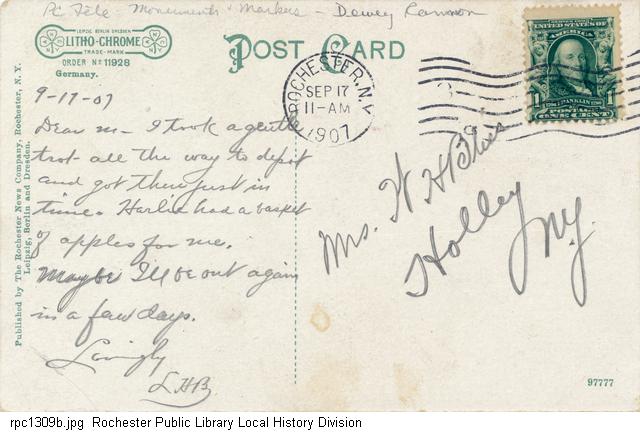 PC File - Monuments & Markers - Dewey Cannon
LEIPZIG BERLIN DRESDEN
LITHO-CHROME
TRADE-MARK
ORDER No 11928
Germany.
POST CARD
ROCHESTER, N.Y.
SEP 17
11-AM
1907
SERIES 1902
UNITED STATES OF AMERICA
1 FRANKLIN 1
POSTAGE
ONE CENT
9-17-07
Dear m- I took a gentle
trot all the way to depot
and got there just in
time. Harlie had a basket
of apples for me.
Maybe I'll be out again
in a few days.
Lovingly
LHB
Mrs. W H
Holley
N.Y.
Published by The Rochester News Company, Rochester, N. Y.
Leipzig, Berlin and Dresden.
97777
rpc1309b.jpg Rochester Public Library Local History Division